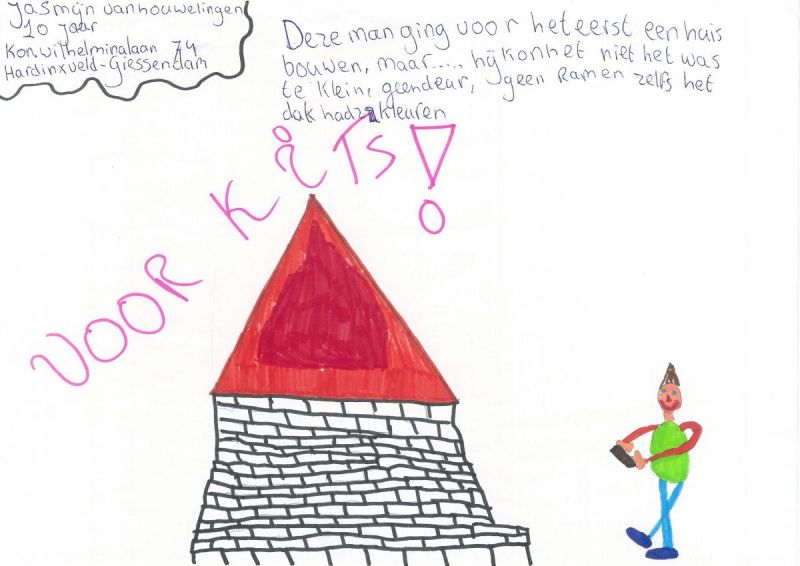 Jasmijn vanhouwelingen
10 jaar
Kon.wilhelminalaan 74
Hardinxveld-Giessendam
Deze man ging voor het eerst een huis
bouwen, maar..... hij kon het niet het was
te klein, geen deur, geen Ramen zelfs het
dak had 2 kleuren
VOOR KiTS!